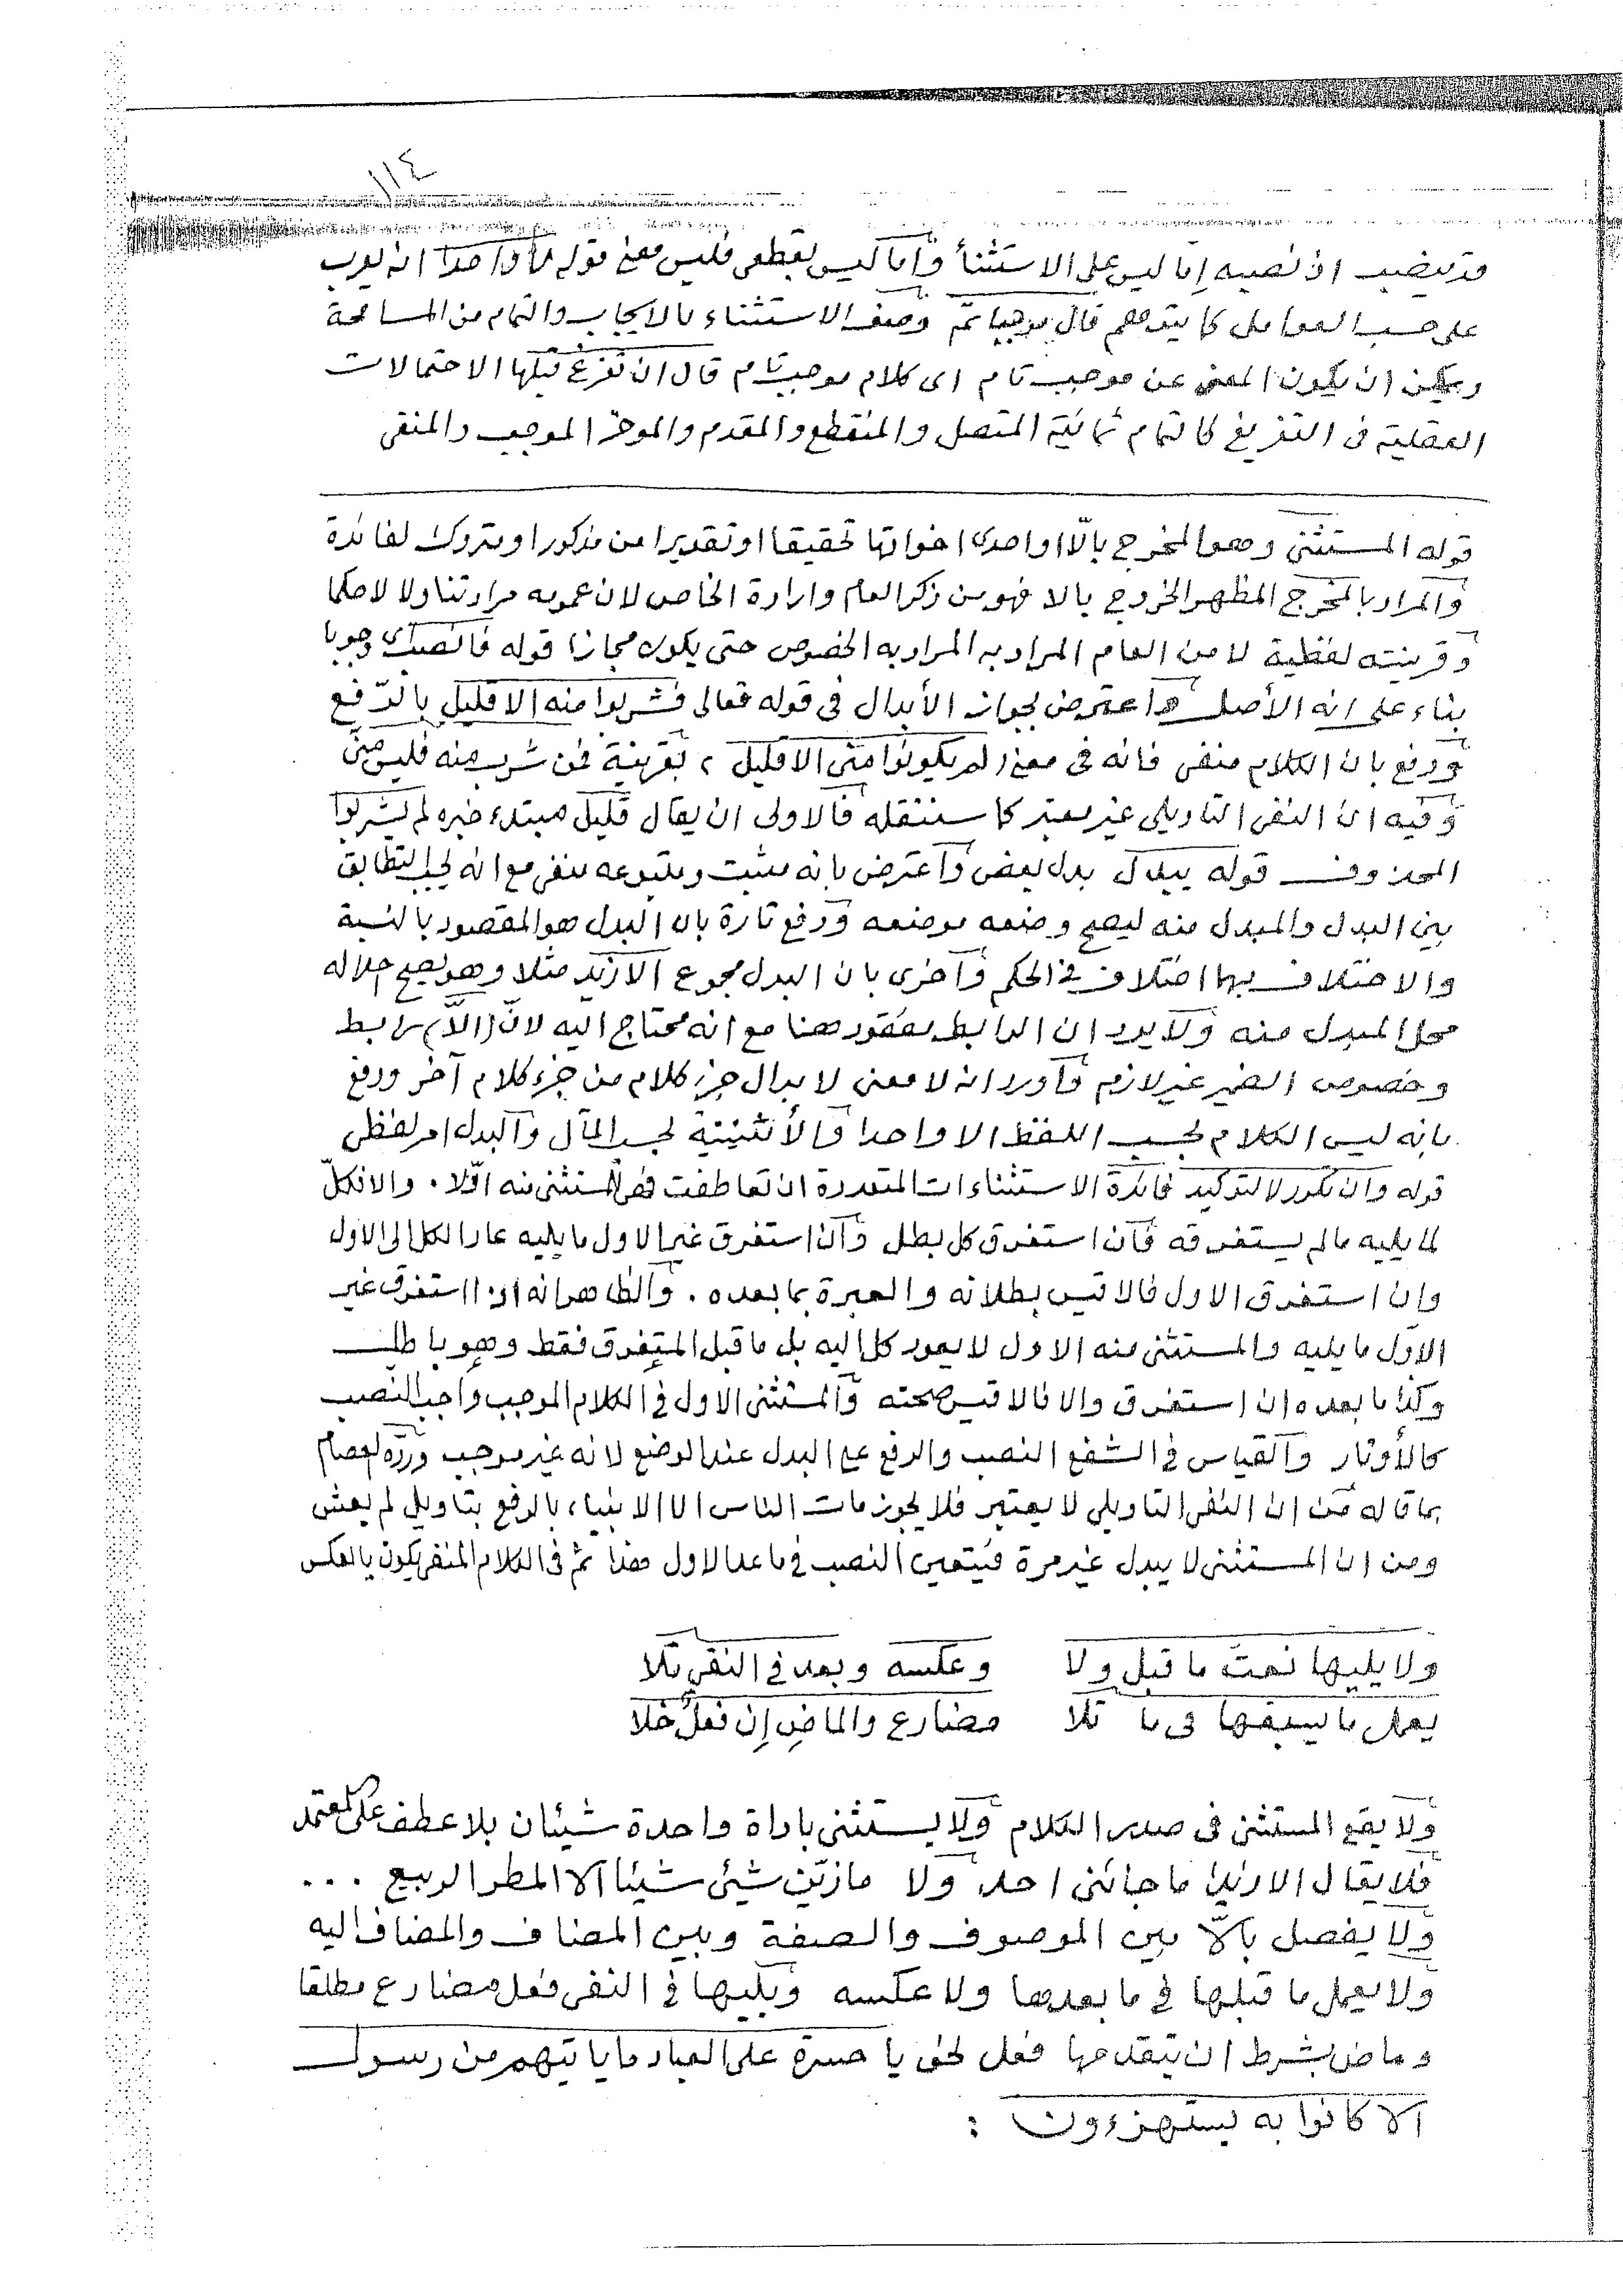 ١١٤
قد ينصب اذ نصبه إما ليس على الاستثناء واما ليس بقطعى فليس معنى قوله واحدا انه يعرب
على حسب العوامل كما يتوهم قال موجبا تمّ وصف الاستثناء بالايجاب والتمام من المسامحة
ويمكن ان يكون المعنى عن موجب تام اى كلام موجب تام قال ان تفرغ قبلها الاحتمالات
العقلية فى التفريغ كالتمام ثمانية المتصل والمنقطع والمقدم والموخر الموجب والمنفى
قوله المستثنى وهو المخرج بالّا او احدى اخواتها تحقيقا او تقديرا من مذكور او متروك لفائدة
والمراد بالمخرج المظهر الخروج بالا فهو من ذكر العام وارادة الخاص لان عمومه مراد تناولا لاحكما
وقرينته لفظية لا من العام المراد به المراد به الخصوص حتى يكون مجازا قوله فانصب اى وجوبا
بناء على انه الأصل واعترض بجواز الأبدال فى قوله تعالى فشربوا منه الا قليل بالرّفع
ودفع بان الكلام منفى فانه فى معنى لم يكونوا منى الا قليل ، بقرينة فمن شرب منه فليس منّى
وفيه ان النفى التاويلى غير معتبر كما سننقله فالاولى ان يقال قليل مبتدء خبره لم يشربوا
المحذوف قوله يبدل بدل بعض واعترض بانه مثبت ومتبوعه منفى مع انه يجب التطابق
بين البدل والمبدل منه ليصح وضعه موضعه ودفع تارة بان البدل هو المقصود بالنسبة
والاختلاف بهما اختلاف فى الحكم وآخرى بان البدل مجموع الا زيد مثلا وهو يصح احلاله
محل المبدل منه ولا يرد ان الرابط مفقود هنا مع انه محتاج اليه لانّ (الاّ) رابط
وخصوص الضمير غير لازم وأورد انه لا معنى لابدال جزء كلام من جزء كلام آخر ودفع
بانه ليس الكلام بحسب اللفظ الا واحدا والأثنينية بحسب المآل والبدل امر لفظى
قوله وان تكرر لا لتوكيد فائدة الاستثناءات المتعددة ان تعاطفت فمن المستثنى منه اوّلا . والا فكلّ
لما يليه مالم يستغرقه فان استغرق كل بطل وان استغرق غير الاول ما يليه عاد الكل الى الاول
وان استغرق الاول فالاقيس بطلانه والعبرة بما بعده . والظاهر انه اذا استغرق غير
الاوّل ما يليه والمستثنى منه الاول لا يعود كل اليه بل ما قبل المستغرق فقط وهو باطل
وكذا ما بعده ان استغرق والا فالاقيس صحته والمستثنى الاول فى الكلام الموجب واجب النصب
كالأوتار والقياس فى الشفع النصب والرفع على البدل عند الوضع لانه غير موجب وردّه لعصام
بما قاله من ان النفى التاويلى لا يعتبر فلا يجوز مات الناس الا الانبياء بالرفع بتاويل لم يعش
ومن ان المستثنى لا يبدل غير مرة فيتعين النصب فى ماعدا الاول هذا ثم فى الكلام المنفى يكون بالعكس
ولا يليها نعت ما قبل ولا وعكسه وبعد فى النفى تلا
يعمل ما يسبقها فى ما تلا مضارع والماضِ إن فعلٌ خلا
ولا يقع المستثنى فى صدر الكلام ولا يستثنى باداة واحدة شيئان بلا عطف على المعتمد
فلا يقال الا زيدا ما جائنى احد ولا ما زيّن شئ شيئا الا المطر الربيع ...
ولا يفصل بالاّ بين الموصوف والصفة وبين المضاف والمضاف اليه
ولا يعمل ما قبلها فى ما بعدها ولا عكسه ويليها فى النفى فعل مضارع مطلقا
وماض بشرط ان يتقدمها فعل نحو يا حسرة على العباد ما ياتيهم من رسول
الا كانوا به يستهزءون :